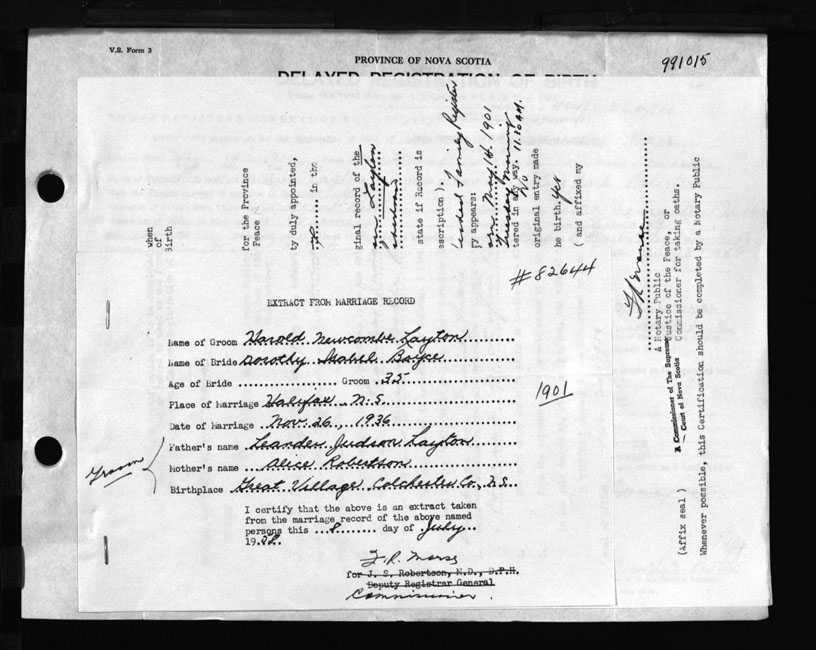 V.S. Form 3
PROVINCE OF NOVA SCOTIA
991015
DELAYED REGISTRATION OF BIRTH
when
of
Birth
for the Province
Peace
ty duly appointed,
in the
ginal record of the
Layton
state if Record is
escription ).
Family Register
ry appears:
May 14, 1901
Tuesday Morning
tered in any way. 11.30 A.M.
No
original entry made
he birth. Yes
( and affixed my
A Notary Public
Justice of the Peace, or
Commissioner for taking oaths.
A Commissioner of The Supreme
Court of Nova Scotia
(Affix seal )
Whenever possible, this Certification should be completed by a Notary Public
#82644
EXTRACT FROM MARRIAGE RECORD
Name of Groom Harold Newcombe Layton
Name of Bride Dorothy Isabel
Age of Bride .................. Groom .35
1901
Place of Marriage Halifax N.S.
Date of Marriage Nov. 26, 1936
Groom
Father's name Leander Judson Layton
Mother's name Alice Robertson
Birthplace Great Village Colchester Co., N.S.
I certify that the above is an extract taken
from the marriage record of the above named
persons this ...8........ day of July
19
F. R. Morse
for J. S. Robertson, M.D., D.P.H.
Deputy Registrar General
Commissioner.